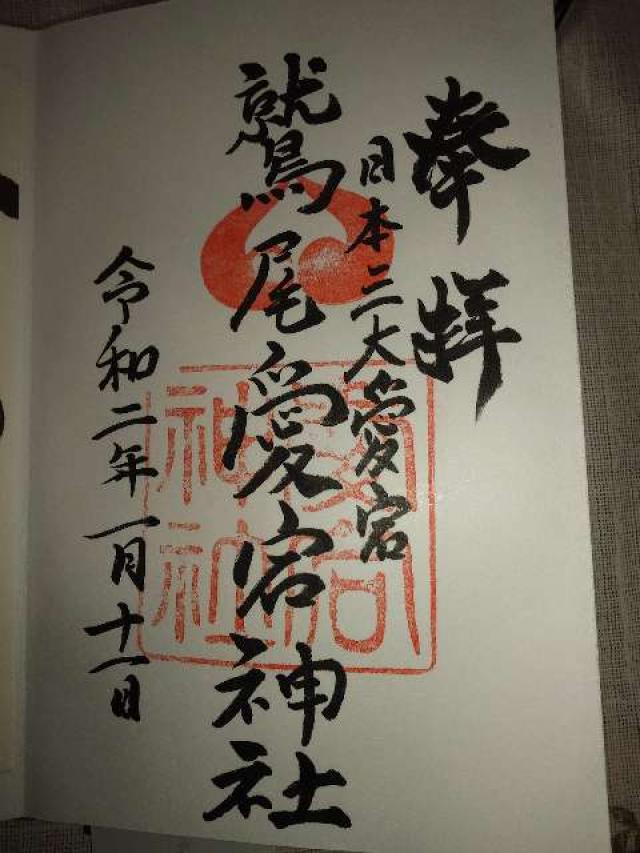 奉拝
日本三大愛宕
鷲尾愛宕神社
令和二年一月十一日
愛宕
神社